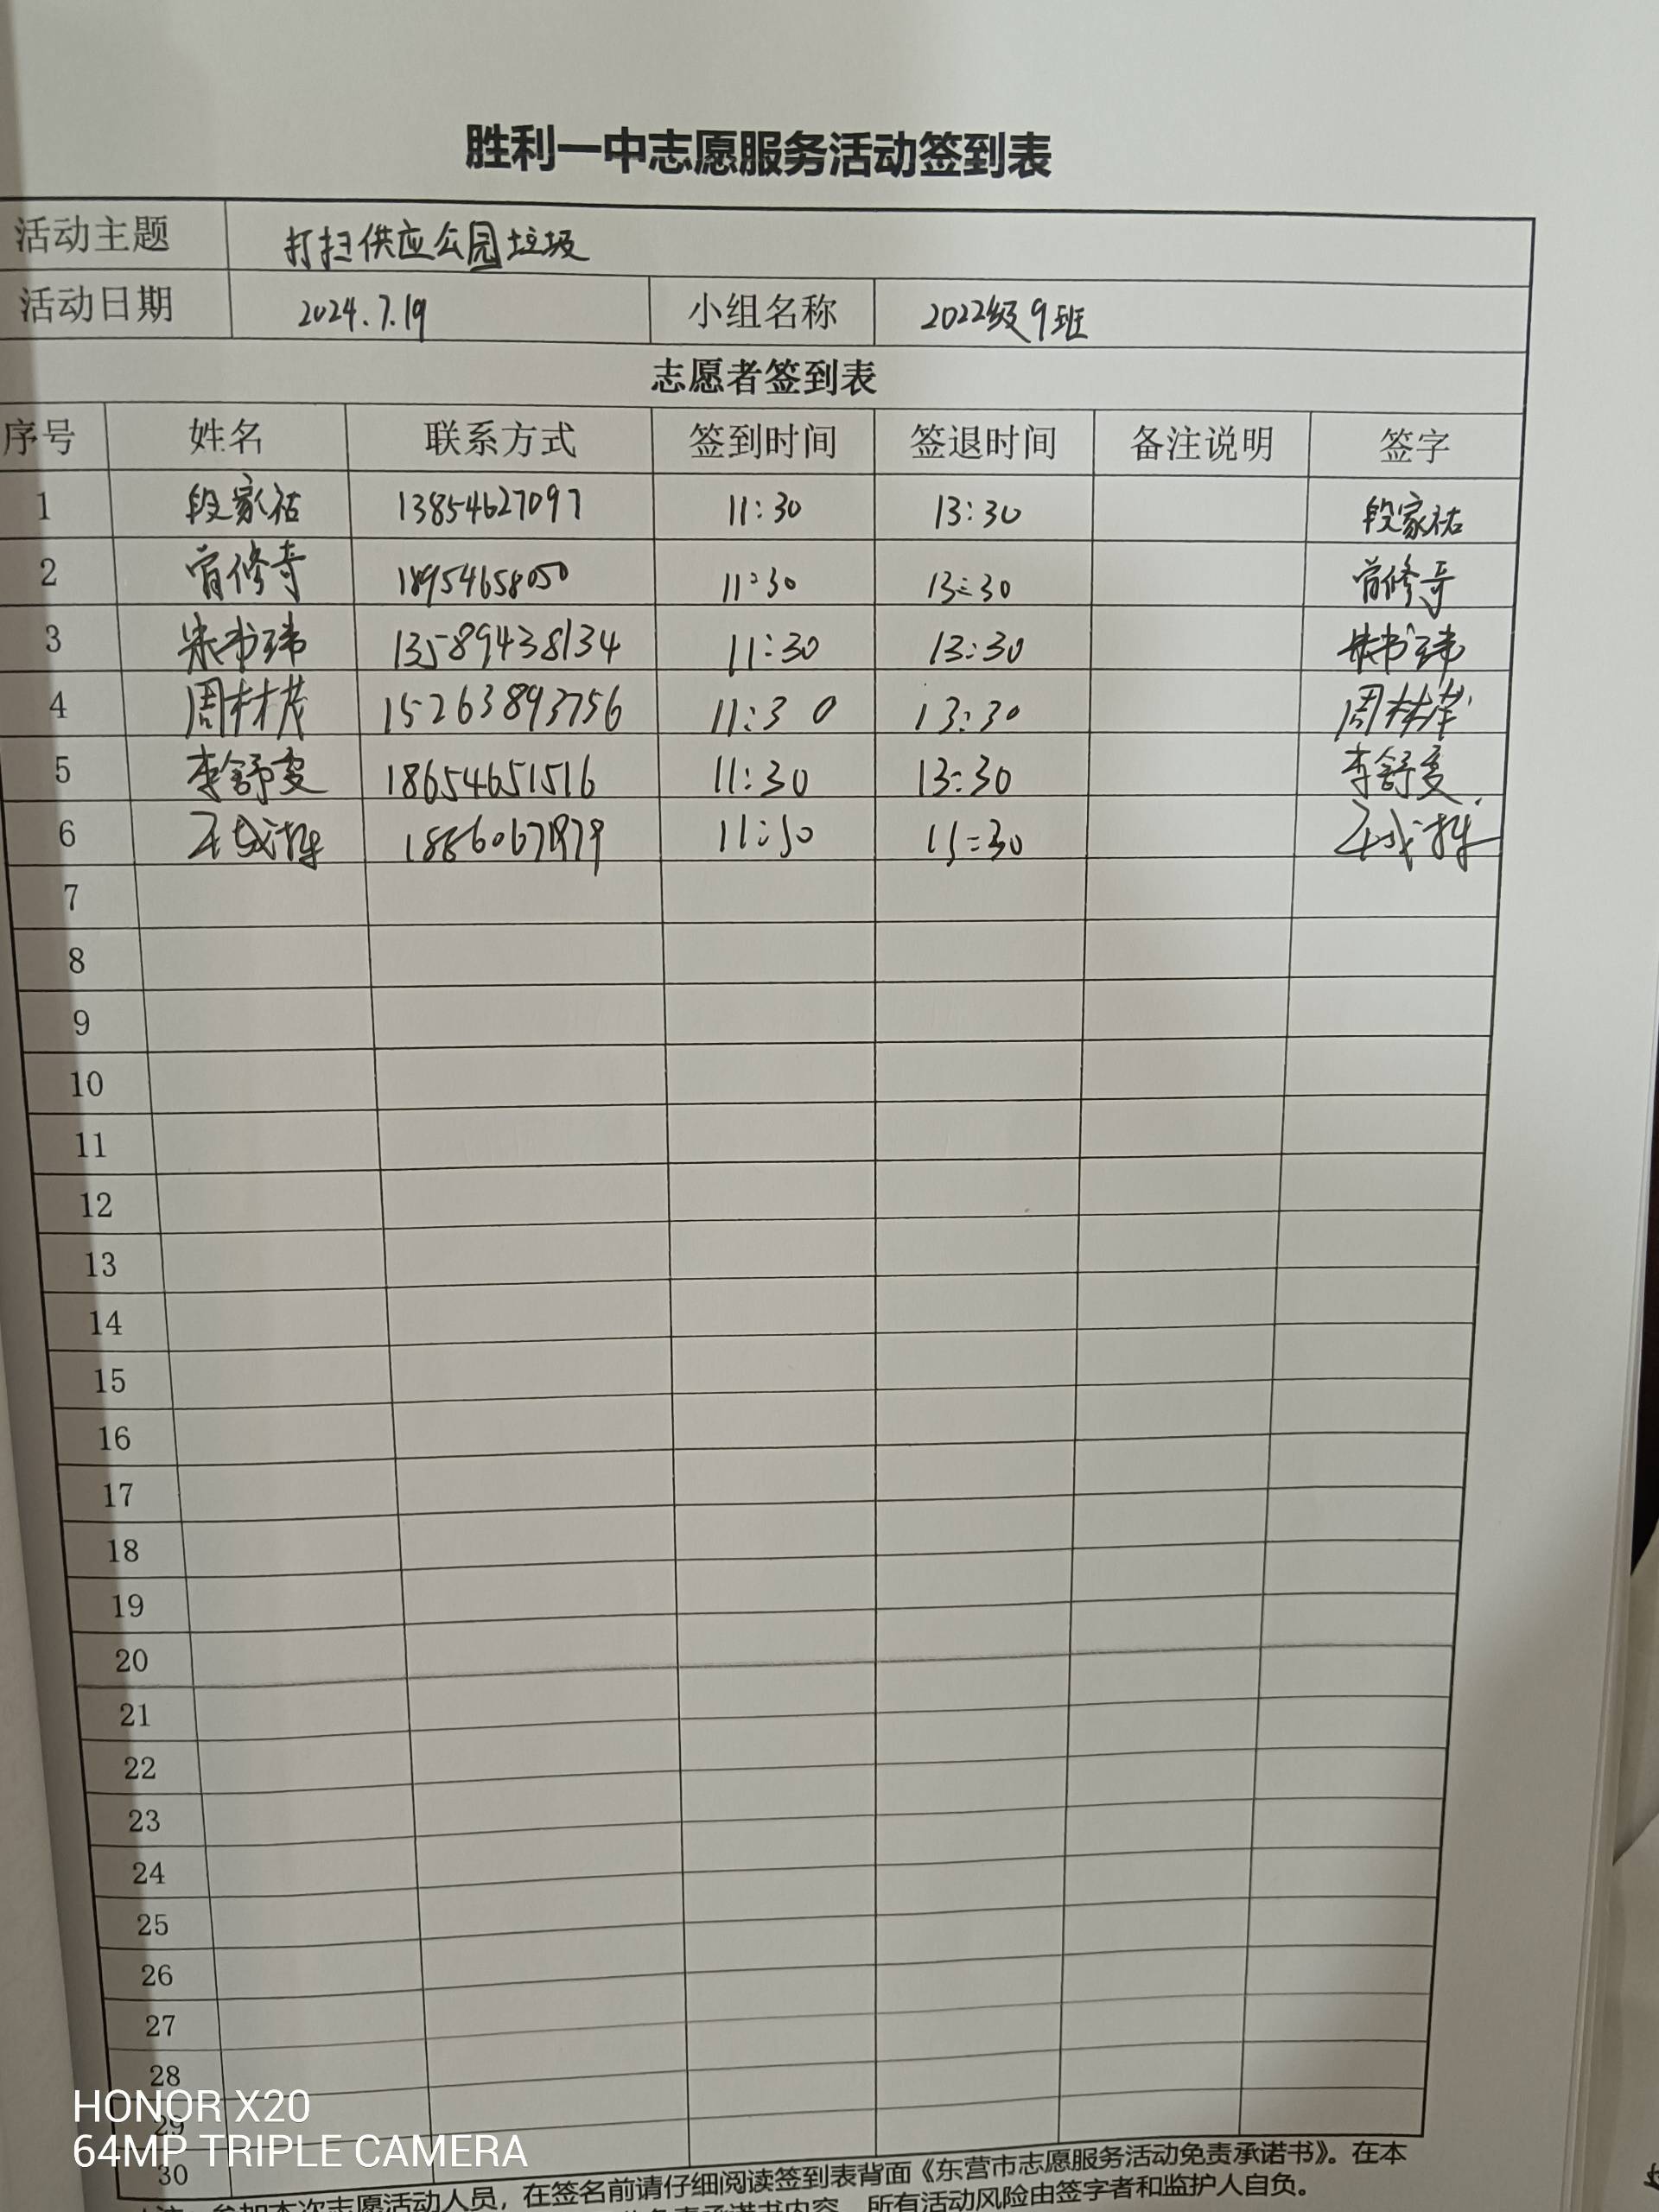 胜利一中志愿服务活动签到表
活动主题 打扫供应公园垃圾
活动日期 2024.7.19 小组名称 2022级9班
志愿者签到表
序号 姓名 联系方式 签到时间 签退时间 备注说明 签字
1 段家祐 13854627097 11:30 13:30 段家祐
2 18954658050 11:30 13:30
3 13589438134 11:30 13:30
4 周林茂 15263893756 11:30 13:30 周林茂
5 李舒雯 18654651516 11:30 13:30 李舒雯
6
7
8
9
10
11
12
13
14
15
16
17
18
19
20
21
22
23
24
25
26
27
28
29
30
参加本次志愿活动人员，在签名前请仔细阅读签到表背面《东营市志愿服务活动免责承诺书》。在本
承诺书内容，所有活动风险由签字者和监护人自负。
HONOR X20
64MP TRIPLE CAMERA